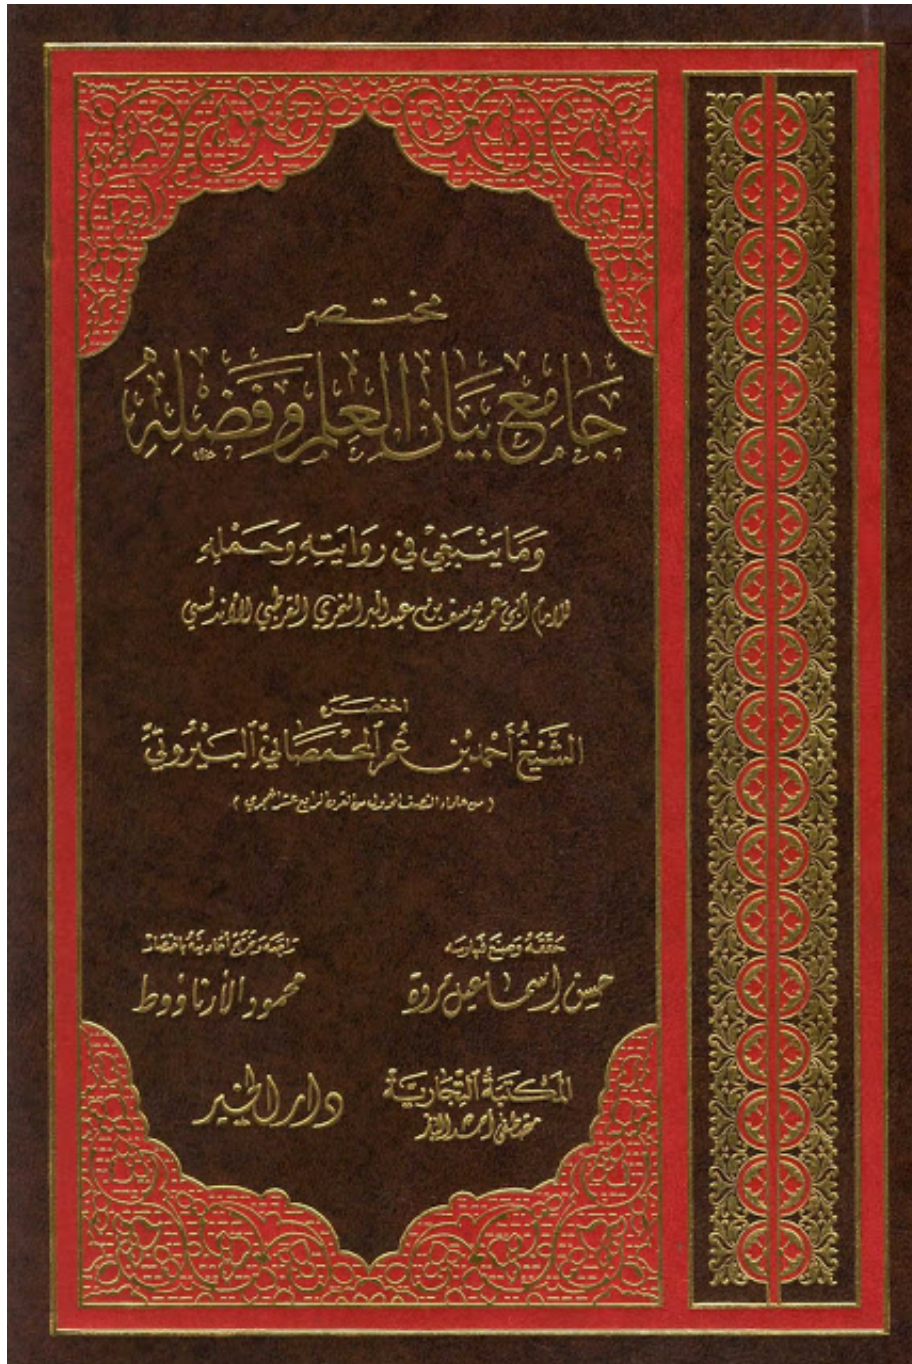 مختصر
جَامِع بَيَان العِلم وَفَضْلِهِ
وَمَا يَنْبَغِيْ في رِوَايَتِهِ وَحَمْلِهِ
للإمام أبي عمر يوسف بن عبد البر النمري القرطبي الأندلسي
اختصره
الشَّيْخ أَحْمَد بْن عُمَر المَحْمَصَانِيّ البَيْرُوتِيّ
( من علماء النصف الأول من القرن الرابع عشر الهجري )
حَقَّقَهُ وَصَنَعَ فَهَارِسَهُ
حسن إسماعيل مروة
رَاجَعَهُ وَخَرَّجَ أَحَادِيثَهُ بِاخْتِصَار
محمود الأرناؤوط
المَكْتَبَةُ التِّجَارِيَّة
مصطفى أحمد الباز
دار الخير